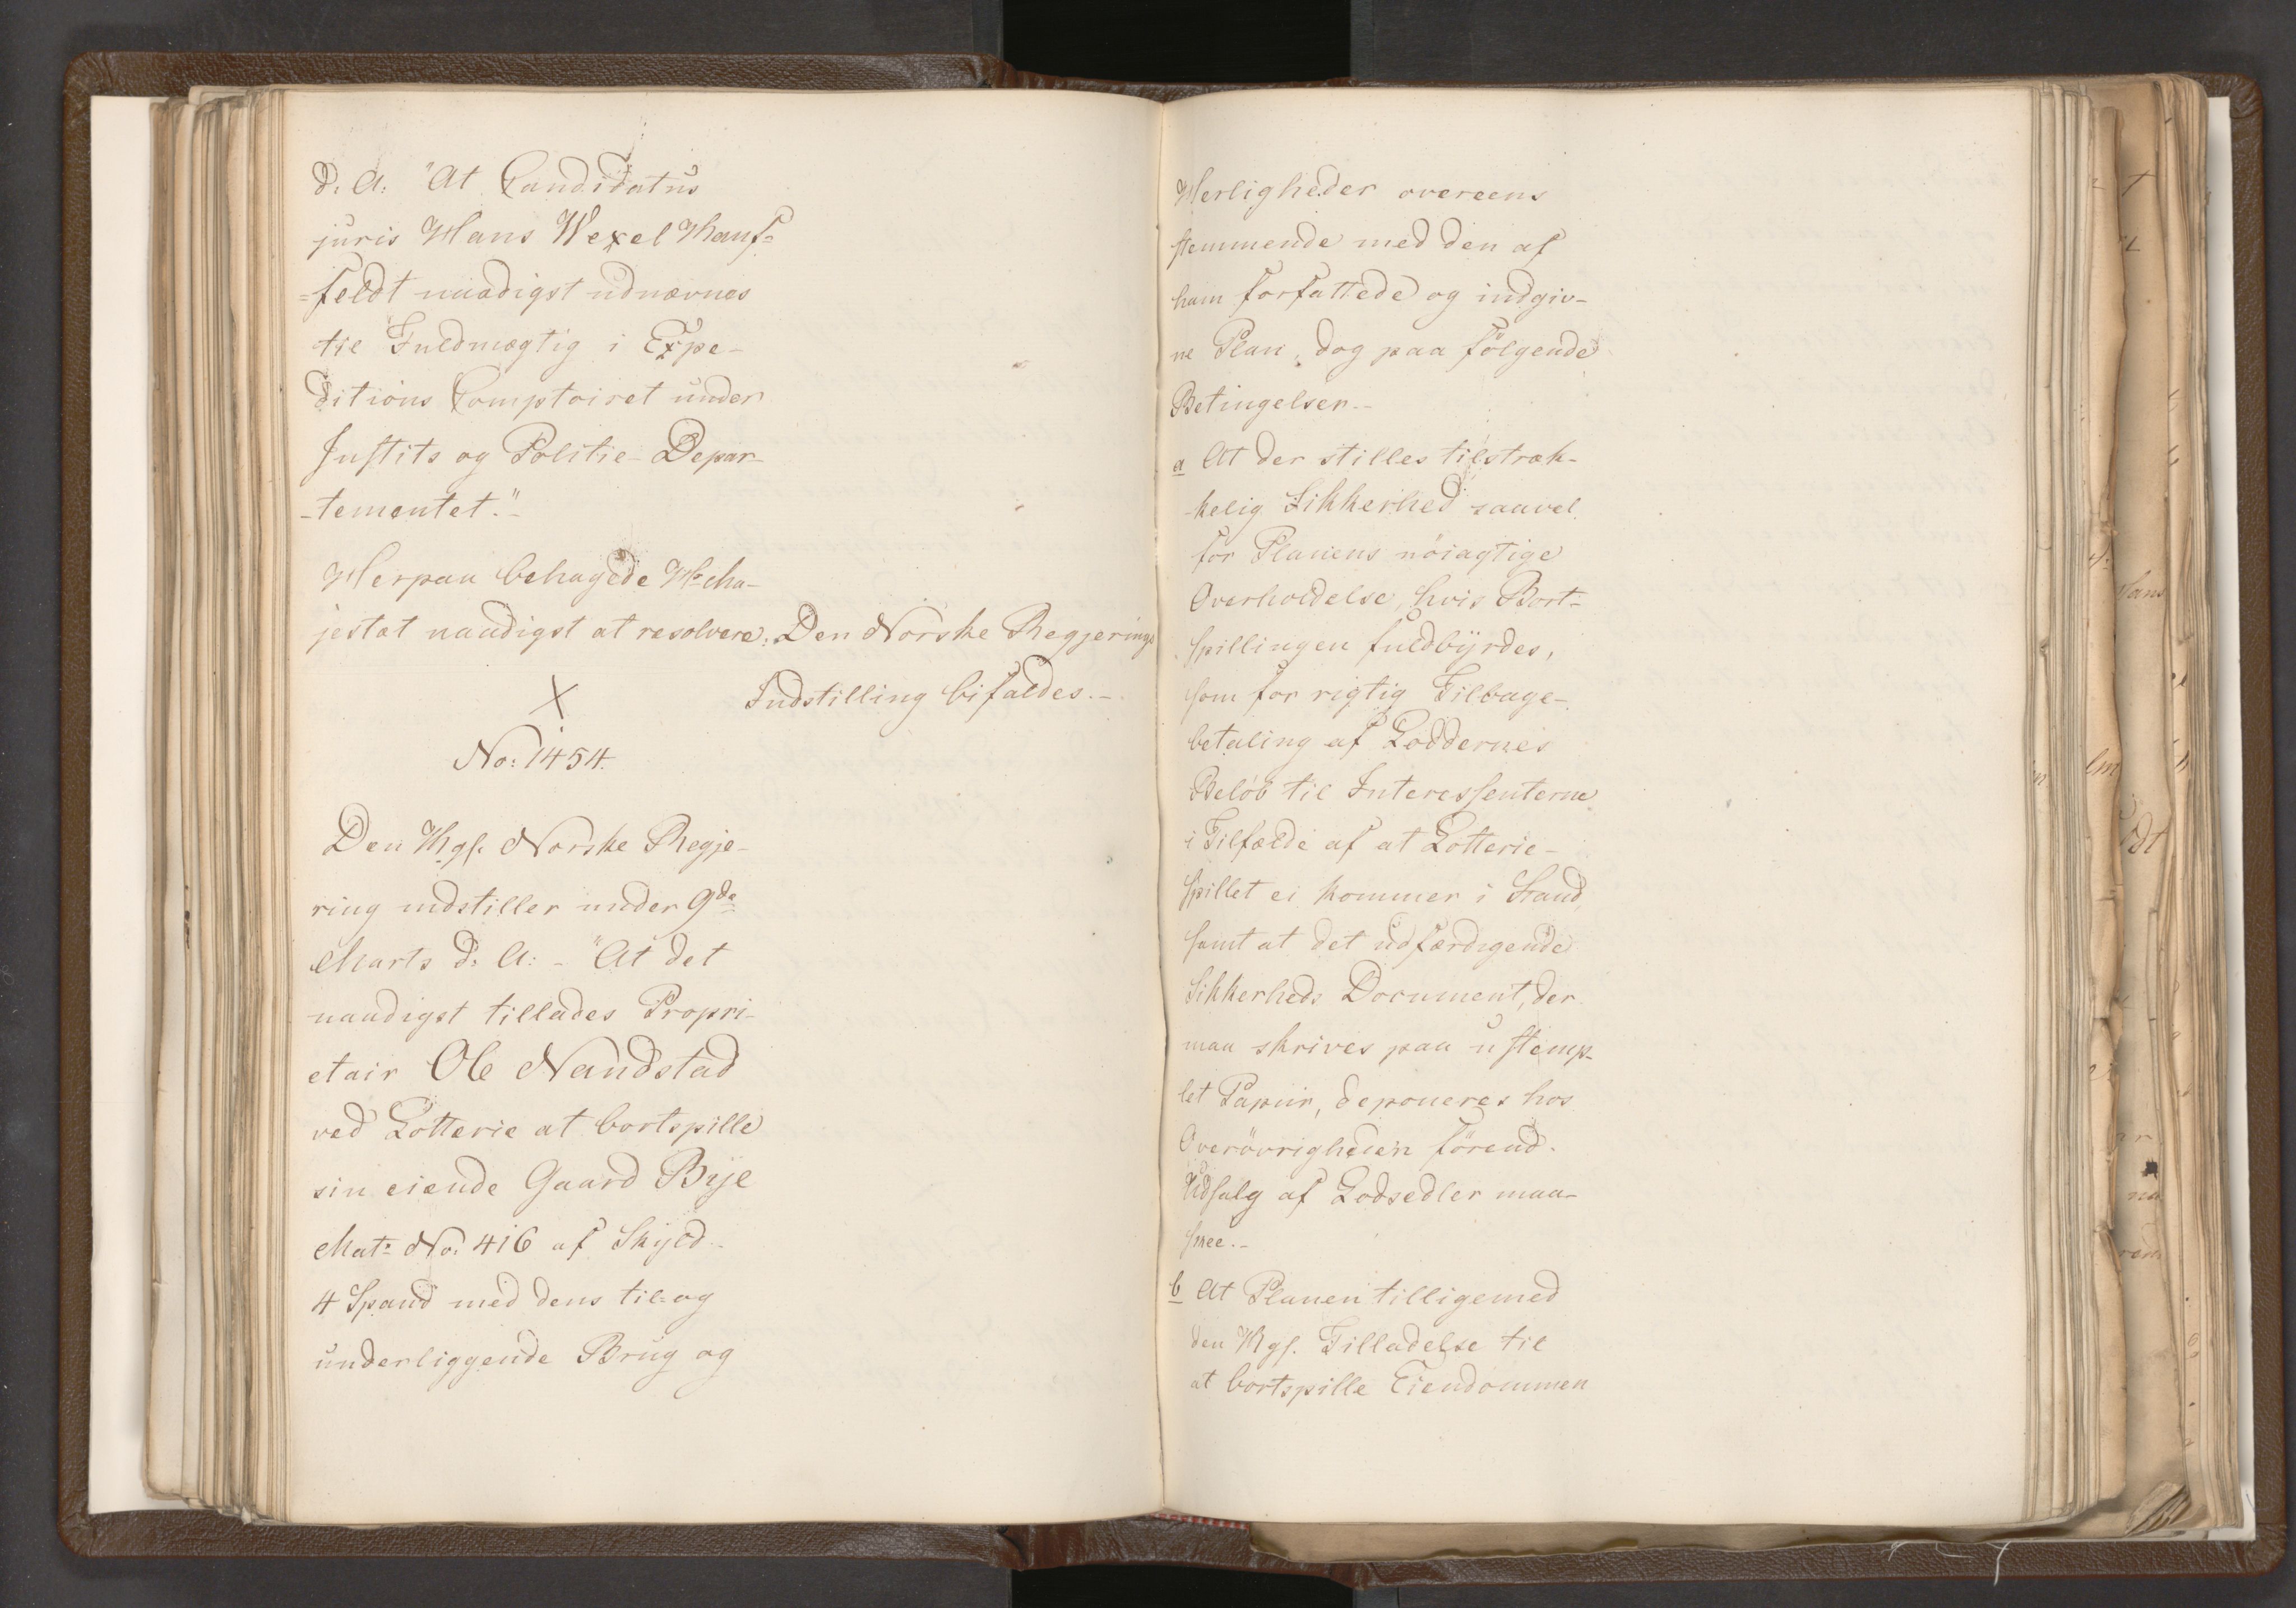 d: A: "At Candidatus
juris Hans Wexel Hans-
=feldt naadigst udnævnes
til Fuldmægtig i Expe-
ditions Comptoiret under
Justits og Politie-Depar-
-tementet."-
Herpaa behagede H: Ma-
jestæt naadigst at resolvere: Den Norske Regjerings
Indstilling bifaldes.-
X
No: 1454.
Den Kgs. Norske Regje-
ring indstiller under 9de
Marts d: A: - "At det
naadigst tillades Propri-
etair Ole Nandstad
ved Lotterie at bortspille
sin eiende Gaard Bye
Mat: No: 416 af Skyld
4 Spand med dens til- og
underliggende Brug og
Herligheder overeens
stemmende med den af
ham forfattede og indgiv-
ne Plan, dog paa følgende
Betingelser.-
a At der stilles tilstræk-
kelig Sikkerhed saavel
for Planens nöiagtige
Overholdelse, hvis Bort-
spillingen fuldbyrdes,
som for rigtig Tilbage-
betaling af Loddernes
Beløb til Interessenterne
i Tilfælde af at Lotterie-
spillet ei kommer i Stand,
samt at det udfærdigende
Sikkerheds Document, der
maa skrives paa ustemp-
let Papiir, deponeres hos
Overövrigheden förend
Udsalg af Lodsedler maa
skee.-
b At Planen tilligemed
den Kgs. Tilladelse til
at bortspille Eiendommen